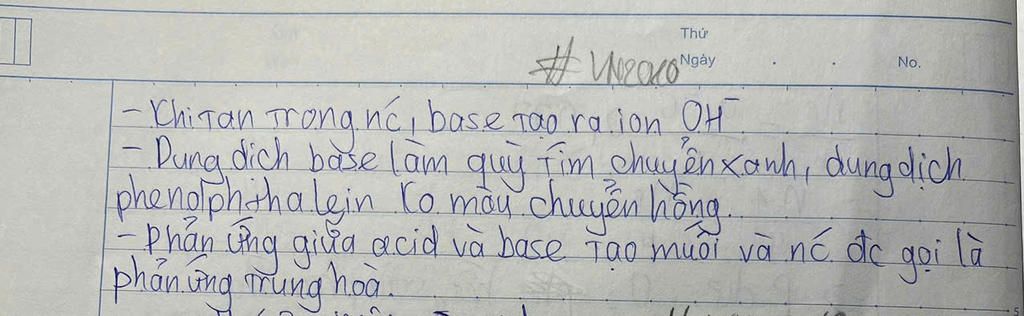 Thứ
Ngày
No.
- Khi tan trong nć, base tạo ra ion OH⁻
- Dung dịch base làm quỳ tím chuyển xanh, dung dịch
phenolphthalein ko màu chuyển hồng.
- Phản ứng giữa acid và base tạo muối và nć đc gọi là
phản ứng trung hoà.